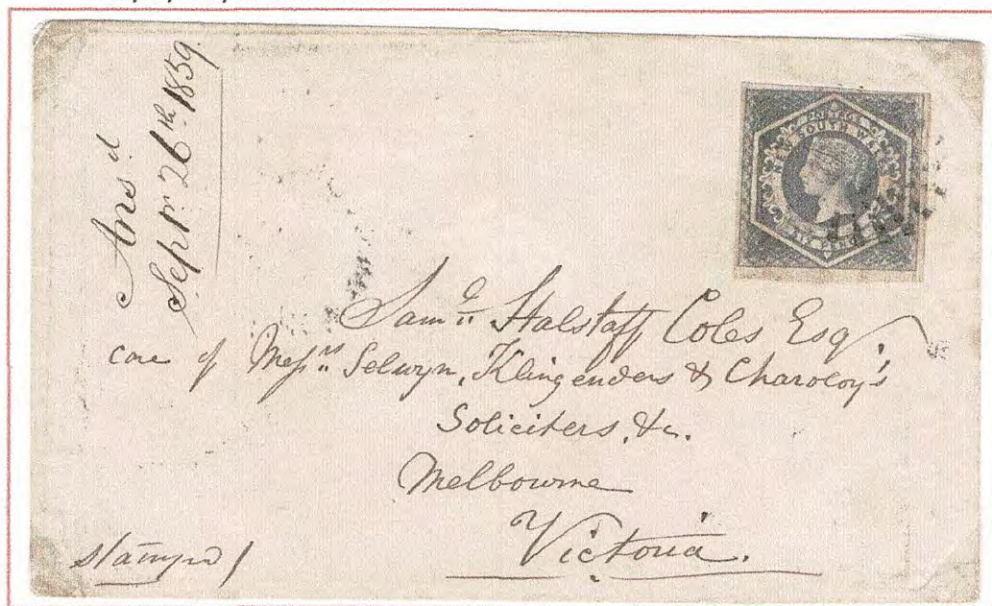 Ansd
Sepr. 26th 1859
POSTAGE
NEW SOUTH WALES
SIX PENCE
Saml. Halstaff Coles Esq.
care of Messrs Selwyn, Klingenders & Charsley's
Soliciters, &c.
Melbourne
Victoria.
stamped